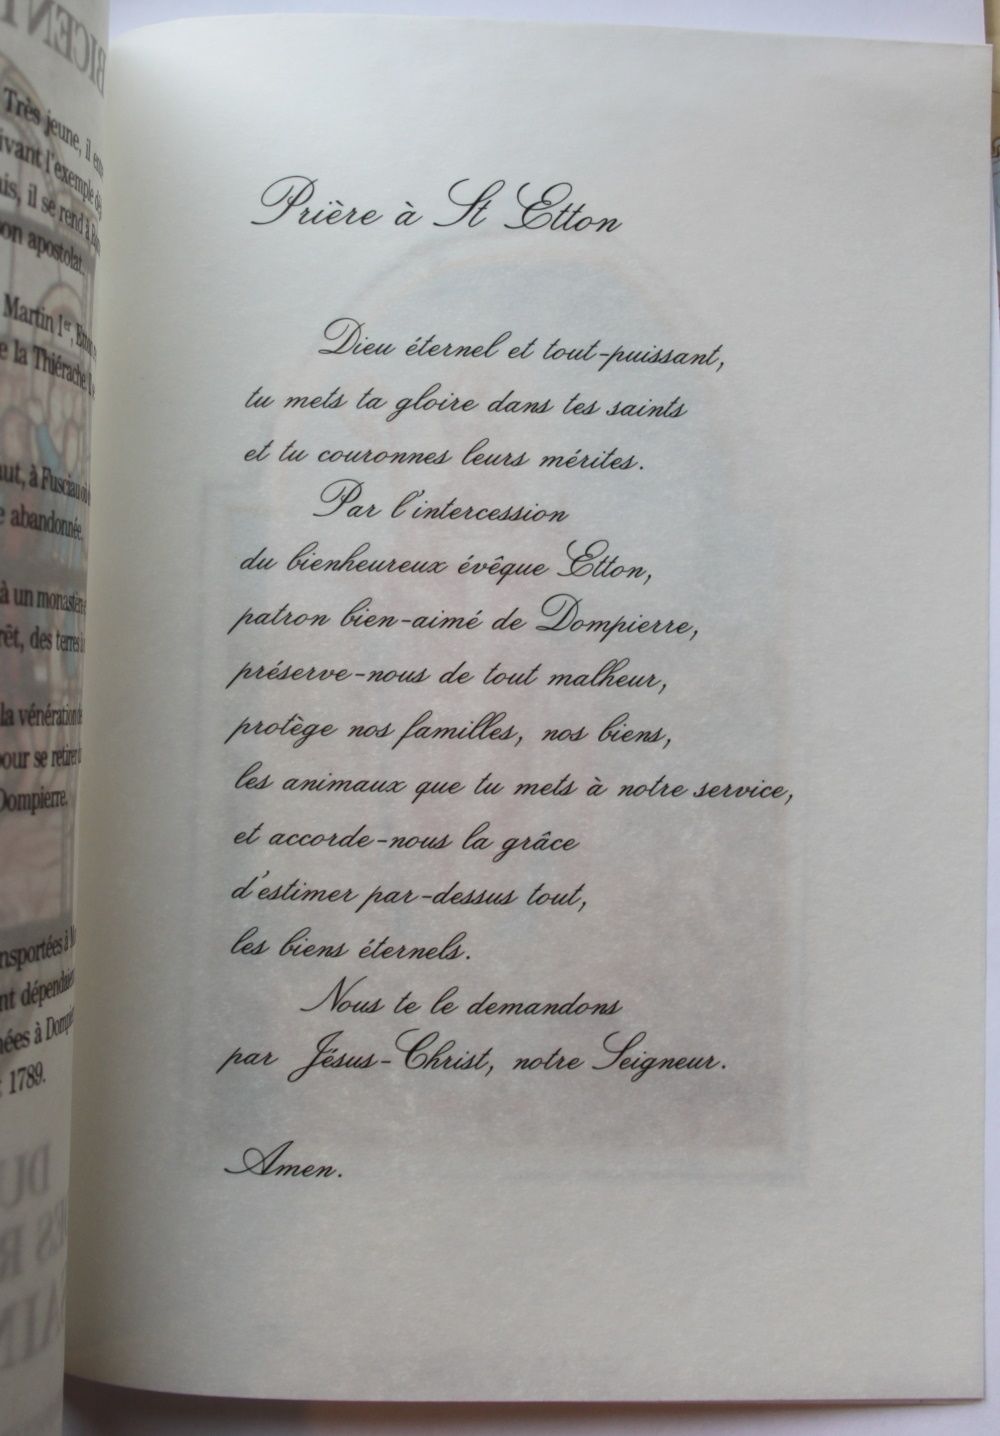 Très jeune, il
l'exemple
il se rend à
apostolat.
Martin 1er,
la Thiérache
à
abandonnée.
à un
des terres
la vénération
pour se retirer
Dompierre.
à
à
1789.
Prière à St Etton
Dieu éternel et tout-puissant,
tu mets ta gloire dans tes saints
et tu couronnes leurs mérites.
Par l'intercession
du bienheureux évêque Etton,
patron bien-aimé de Dompierre,
préserve-nous de tout malheur,
protège nos familles, nos biens,
les animaux que tu mets à notre service,
et accorde-nous la grâce
d'estimer par-dessus tout,
les biens éternels.
Nous te le demandons
par Jésus-Christ, notre Seigneur.
Amen.